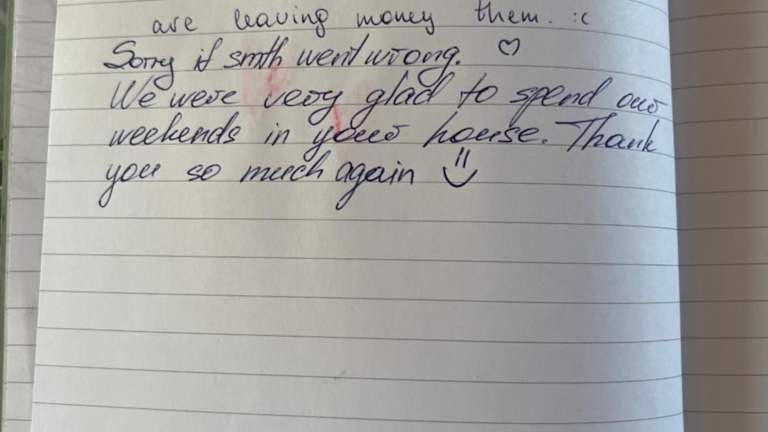 are leaving money them. :c
Sorry if smth went wrong. ♡
We were very glad to spend our
weekends in your house. Thank
you so much again :)